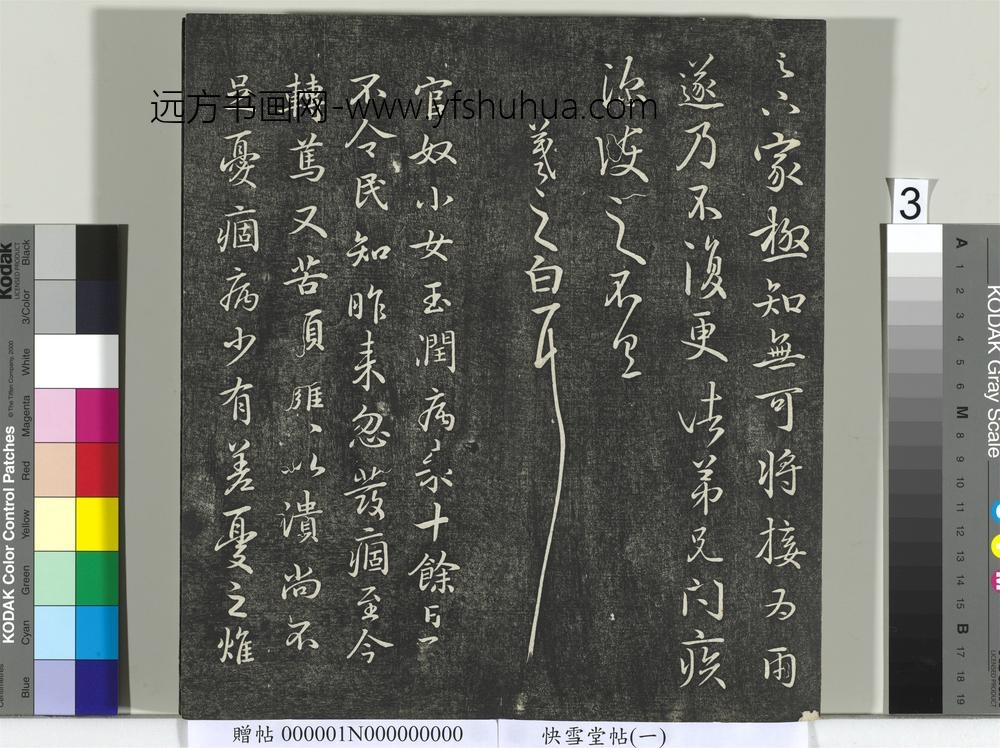 之六家極知無可將接为雨
遂乃不復更諸弟兄問疾
深護之不具
羲之白耳
官奴小女玉潤病來十餘日了
不令民知昨來忽發痼至今
轉篤又苦頭癰々以潰尚不
足憂痼病少有差憂之燋
远方书画网-www.yfshuhua.com
3
Kodak
LICENSED PRODUCT
KODAK Color Control Patches
© The Tiffen Company, 2000
Black
3/Color
White
Magenta
Red
Yellow
Green
Cyan
Blue
KODAK Gray Scale
A 1 2 3 4 5 6 M 8 9 10 11 12 13 14 15 B 17 18 19
贈帖 000001N000000000
快雪堂帖(一)